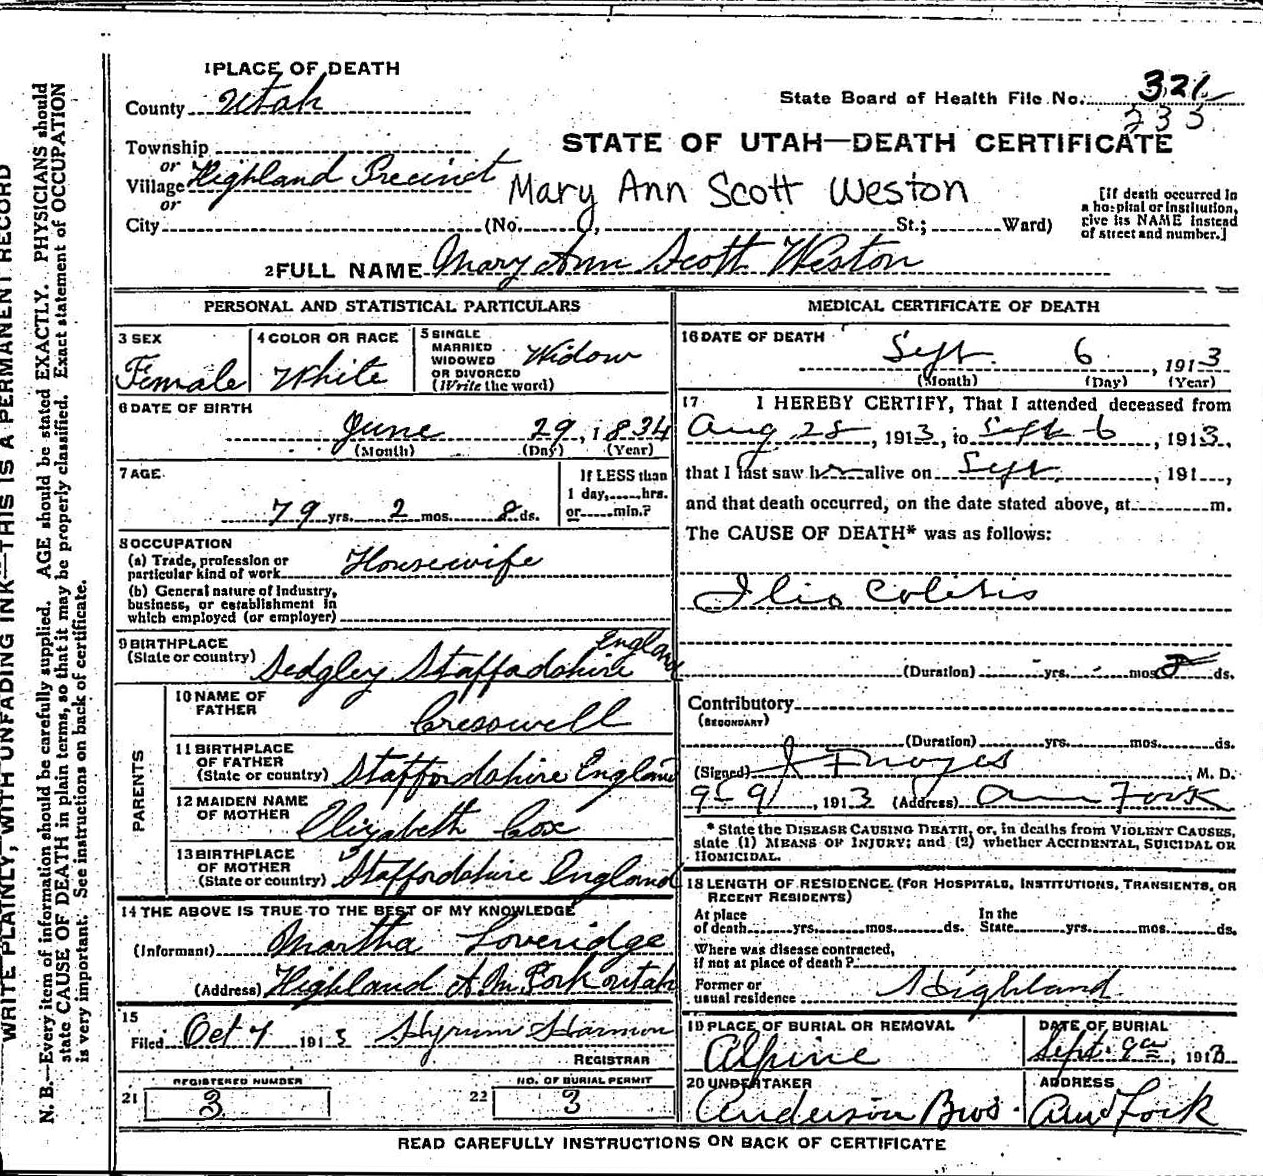 WRITE PLAINLY, WITH UNFADING INK—THIS IS A PERMANENT RECORD
N. B.—Every item of information should be carefully supplied. AGE should be stated EXACTLY. PHYSICIANS should
state CAUSE OF DEATH in plain terms, so that it may be properly classified. Exact statement of OCCUPATION
is very important. See instructions on back of certificate.
1 PLACE OF DEATH
County Utah
State Board of Health File No. 321
233
Township
or
Village Highland Precinct
or
City (No. St.; Ward)
STATE OF UTAH—DEATH CERTIFICATE
Mary Ann Scott Weston
[If death occurred in
a hospital or institution,
give its NAME instead
of street and number.]
2 FULL NAME Mary Ann Scott Weston
PERSONAL AND STATISTICAL PARTICULARS
3 SEX
Female
4 COLOR OR RACE
White
5 SINGLE
MARRIED
WIDOWED
OR DIVORCED
(Write the word)
Widow
6 DATE OF BIRTH
June 29, 1834
(Month) (Day) (Year)
7 AGE
79 yrs. 2 mos. 8 ds.
If LESS than
1 day, hrs.
or min.?
8 OCCUPATION
(a) Trade, profession or
particular kind of work Housewife
(b) General nature of Industry,
business, or establishment in
which employed (or employer)
9 BIRTHPLACE
(State or country) Sedgley Staffordshire England
PARENTS
10 NAME OF
FATHER
Cresswell
11 BIRTHPLACE
OF FATHER
(State or country) Staffordshire England
12 MAIDEN NAME
OF MOTHER
Elizabeth Cox
13 BIRTHPLACE
OF MOTHER
(State or country) Staffordshire England
14 THE ABOVE IS TRUE TO THE BEST OF MY KNOWLEDGE
(Informant) Martha Loveridge
(Address) Highland A.m Fork utah
15
Filed Oct 7 1913 Hyrum Harmon
REGISTRAR
REGISTERED NUMBER
21 3
NO. OF BURIAL PERMIT
22 3
MEDICAL CERTIFICATE OF DEATH
16 DATE OF DEATH
Sept. 6, 1913
(Month) (Day) (Year)
17 I HEREBY CERTIFY, That I attended deceased from
Aug 28, 1913, to Sept 6, 1913.
that I last saw her alive on Sept, 191
and that death occurred, on the date stated above, at m.
The CAUSE OF DEATH* was as follows:
Ilio Colitis
(Duration) yrs. mos. ds.
Contributory
(SECONDARY)
(Duration) yrs. mos. ds.
(Signed) J F Noyes, M. D.
9-9, 1913 (Address) Am Fork
* State the DISEASE CAUSING DEATH, or, in deaths from VIOLENT CAUSES,
state (1) MEANS OF INJURY; and (2) whether ACCIDENTAL, SUICIDAL OR
HOMICIDAL.
18 LENGTH OF RESIDENCE (FOR HOSPITALS, INSTITUTIONS, TRANSIENTS, OR
RECENT RESIDENTS)
At place
of death yrs. mos. ds.
In the
State yrs. mos. ds.
Where was disease contracted,
if not at place of death?
Former or
usual residence Highland
19 PLACE OF BURIAL OR REMOVAL
Alpine
DATE OF BURIAL
Sept. 9th, 1913
20 UNDERTAKER
Anderson Bros.
ADDRESS
Am Fork
READ CAREFULLY INSTRUCTIONS ON BACK OF CERTIFICATE